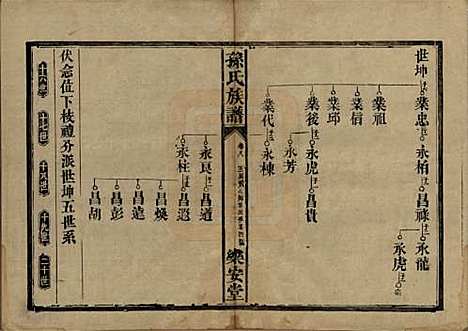 世坤
業忠
業祖
業信
業邱
業後
業代
永柏
永虎
永芳
永棟
昌祿
昌貴
永龍
永虎
孫氏族譜
卷八
樂安堂
永良
永柱
昌道
昌遐
昌煥
昌遠
昌彭
昌胡
伏念位下枝禮分派世坤五世系
十六世
十七世
十八世
十九世
二十世